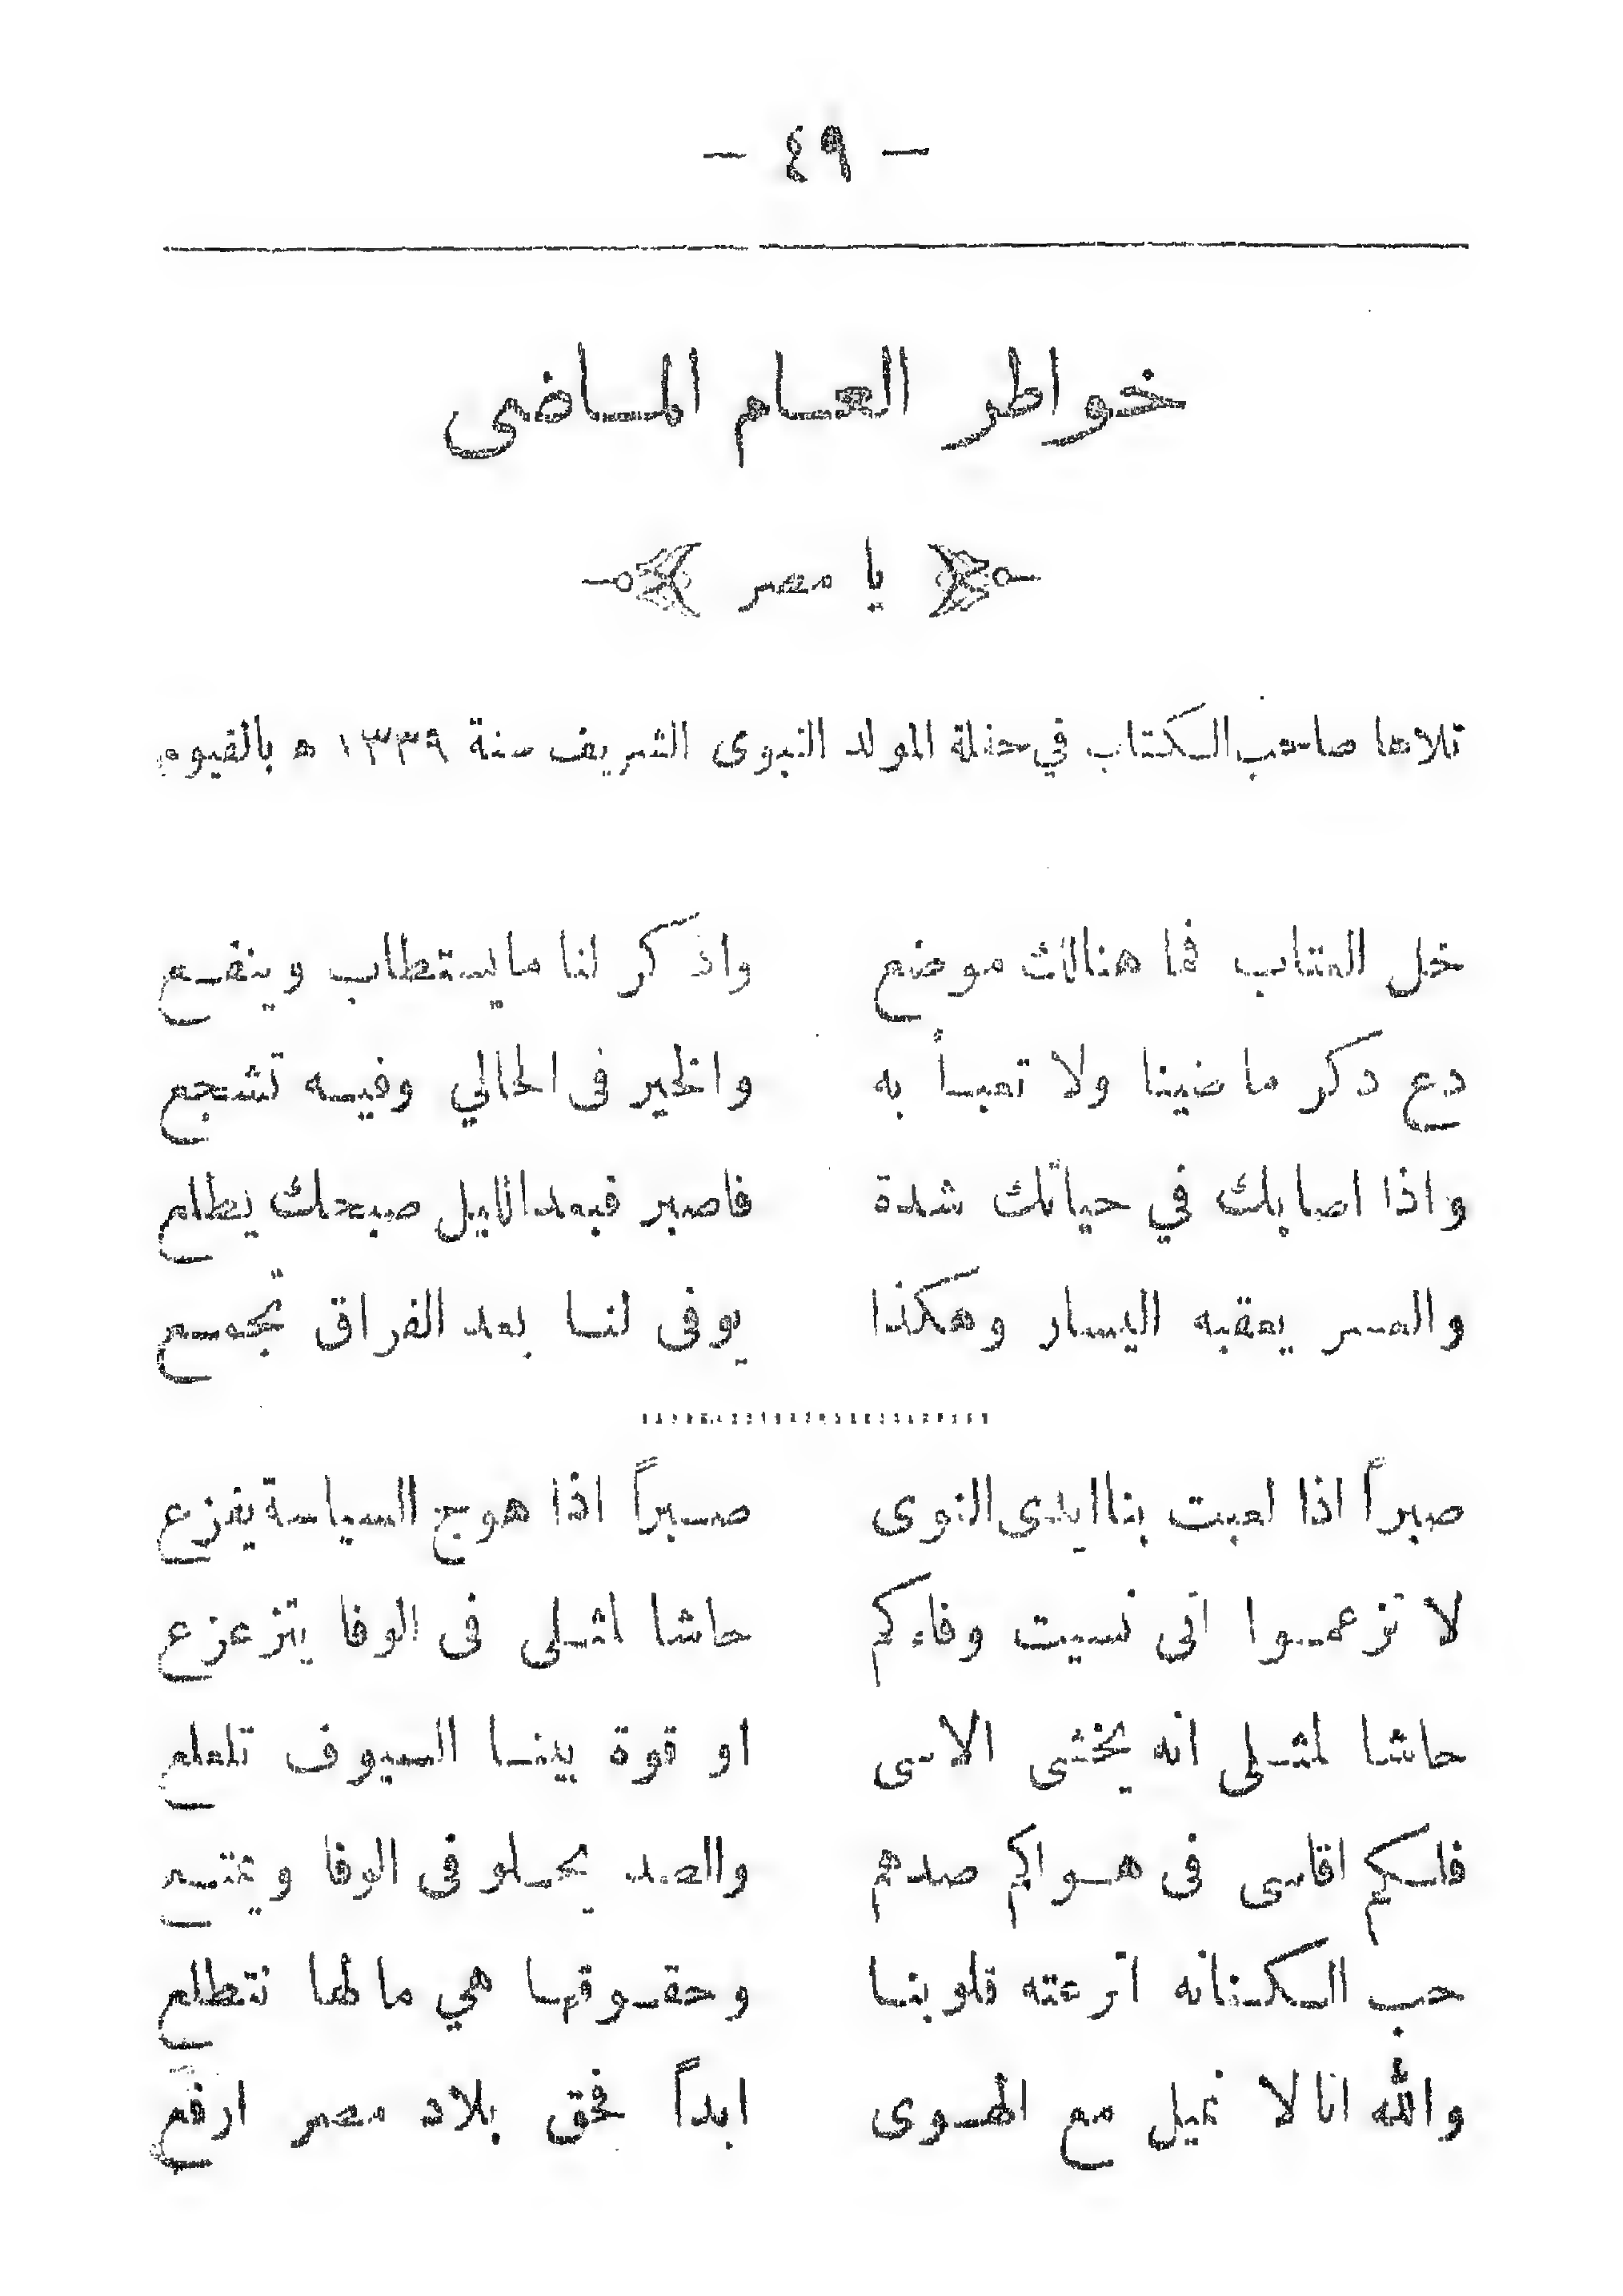 - ٤٩ -
خواطر العام الماضى
يا مصر
تلاها صاحب الكتاب في حفلة المولد النبوى الشريف سنة ١٣٣٩ ه بالفيوم
خل العتاب فما هنالك موضع واذكر لنا ما يستطاب وينفع
دع ذكر ماضينا ولا تعبأ به والخير فى الحالي وفيه تشجع
واذا اصابك في حياتك شدة فاصبر فبعد الليل صبحك يطلع
والعسر يعقبه اليسار وهكذا يوفى لنا بعد الفراق تجمع
صبراً اذا لعبت بنا ايدى النوى صبراً اذا هوج السياسة يفزع
لا تزعموا انى نسيت وفاءكم حاشا لمثلى فى الوفا يتزعزع
حاشا لمثلى انه يخشى الاسى او قوة بينا السيوف تلعلع
فلكم اقاسى فى هواكم صدهم والصد يحلو فى الوفا ويمتع
حب الكنانه اترعته قلوبنا وحقوقها هي ما لها نتطلع
والله انا لا نميل مع الهوى ابداً فحق بلاد مصر ارفع